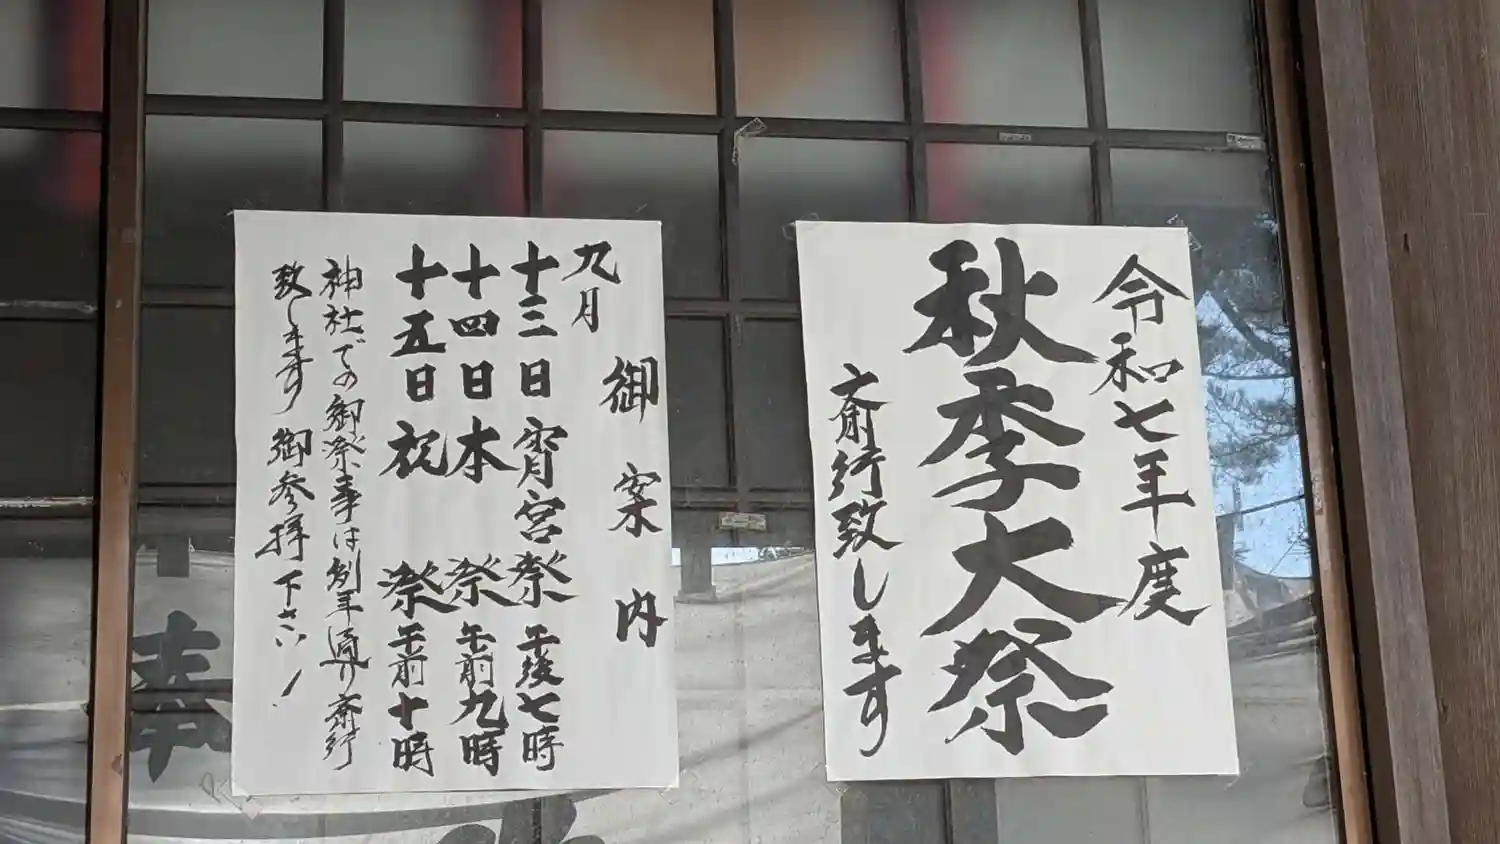 令和七年度
秋季大祭
斎行致します
御案内
九月
十三日宵宮祭午後七時
十四日本祭午前九時
十五日祝祭午前十時
神社での御祭事は例年通り斎行
致します御参拝下さい！
奉